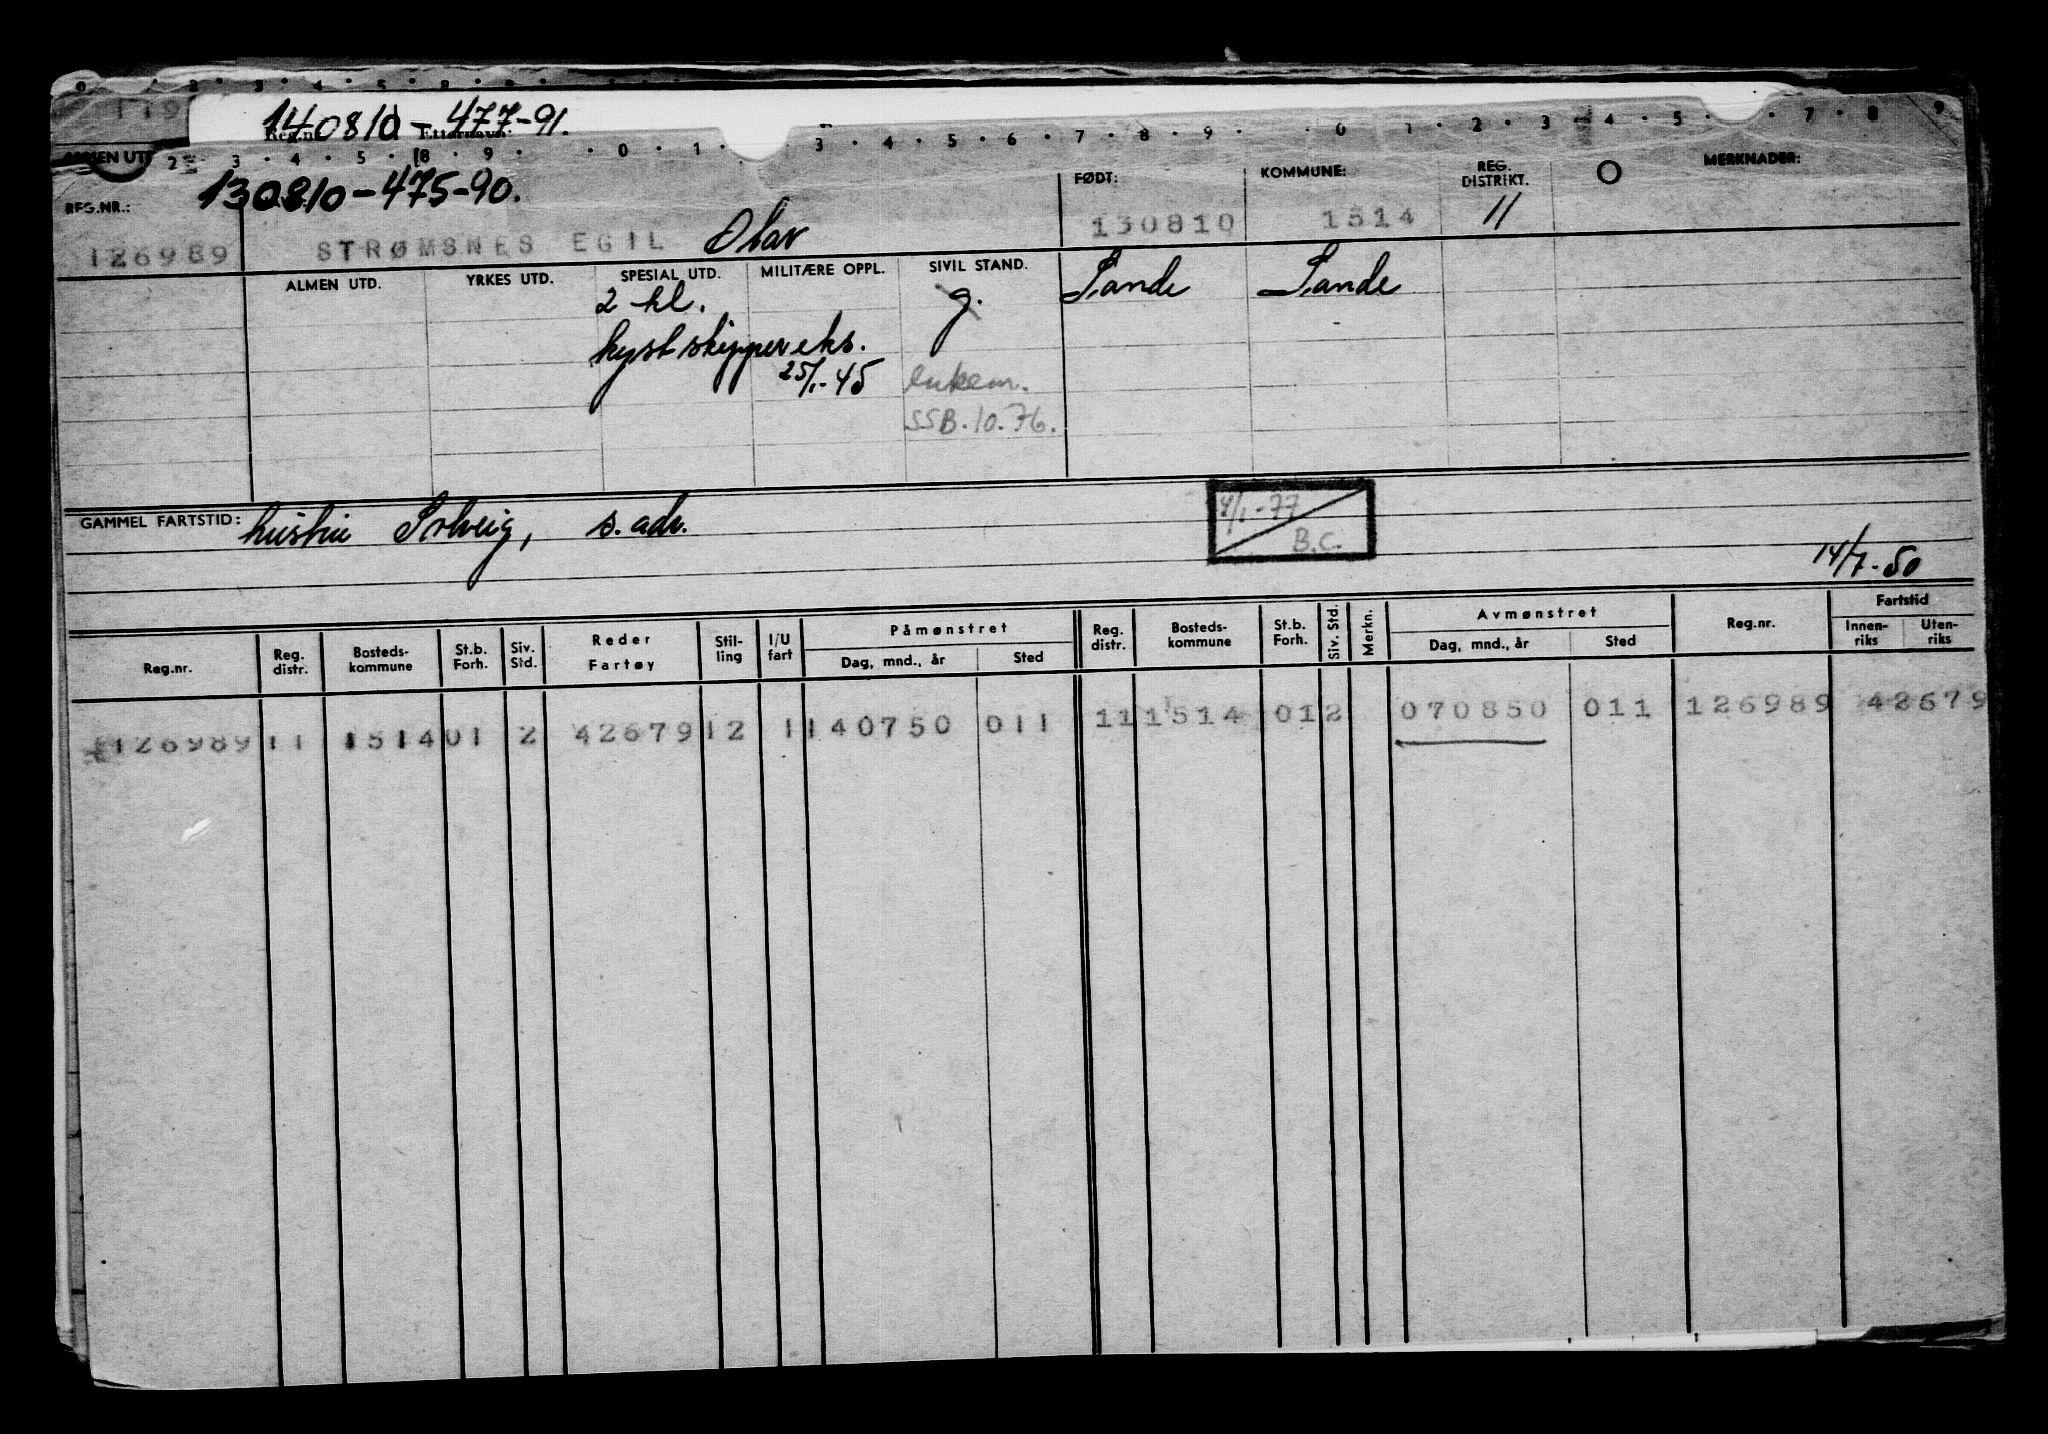 140810-477-91.
Reg.nr. Etternavn:
130810-475-90.
REG.NR.: FØDT: KOMMUNE: REG. DISTRIKT. MERKNADER:
126989 STRØMSNES EGIL Olav 130810 1514 11
ALMEN UTD. YRKES UTD. SPESIAL UTD. MILITÆRE OPPL. SIVIL STAND.
2 kl. g. Sande Sande
kystskippereks.
25/1-45 enkem.
SSB.10.76.
GAMMEL FARTSTID: hustru Solveig, s. adr.
4/1-77
B.C.
14/7-50
Reg.nr. Reg. distr. Bosteds-kommune St.b. Forh. Siv. Std. Reder Fartøy Stil-ling I/U fart Påmønstret Dag, mnd., år Sted Reg. distr. Bosteds-kommune St.b. Forh. Siv. Std. Merkn. Avmønstret Dag, mnd., år Sted Reg.nr. Fartstid Innen-riks Uten-riks
126989 11 1514 01 2 42679 12 1 140750 011 11 1514 01 2 070850 011 126989 42679